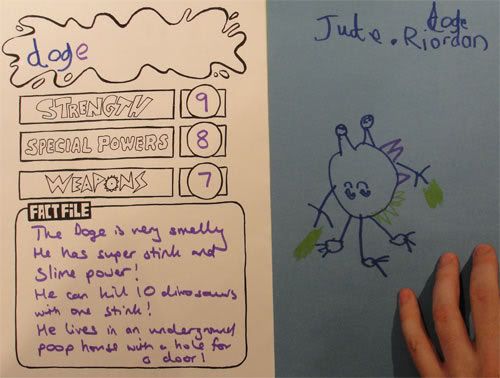 doge
STRENGTH 9
SPECIAL POWERS 8
WEAPONS 7
FACT FILE
The Doge is very smelly
He has super stink and
Slime power!
He can kill 10 dinosaurs
with one stink!
He lives in an underground
poop house with a hole for
a door!
doge
Jude.Riordan